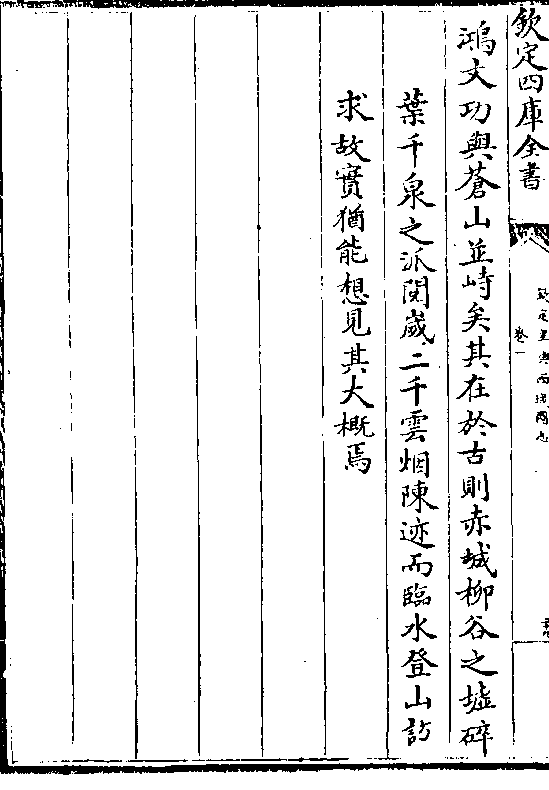 欽定四庫全書
欽定皇輿西域圖志
卷一
鴻文功與蒼山並峙矣其在於古則赤城柳谷之墟碎
葉千泉之派閱歲二千雲烟陳迹而臨水登山訪
求故實猶能想見其大概焉